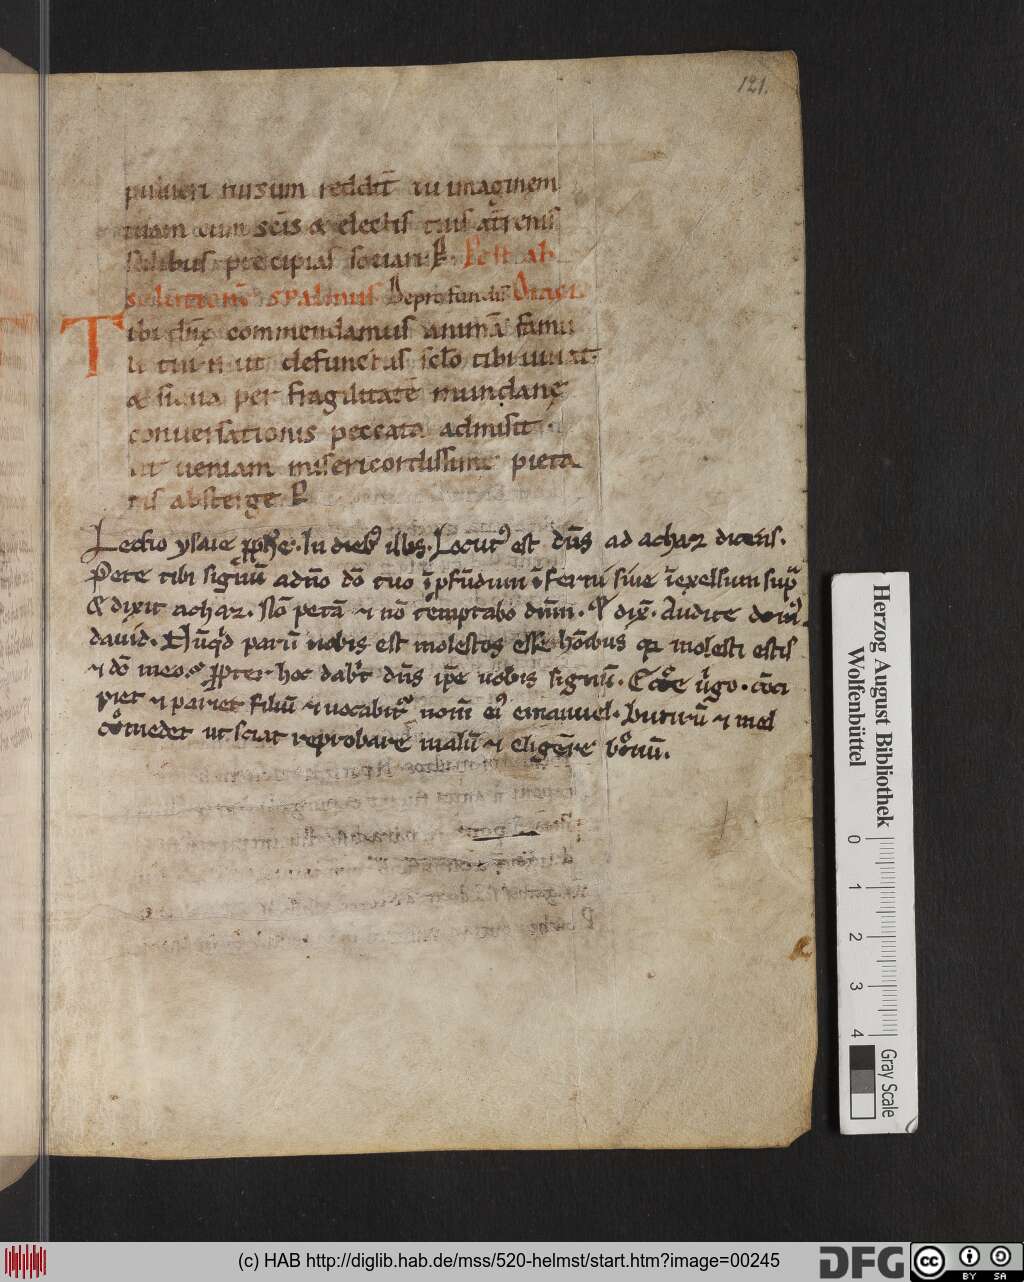 121.
pulueri rursum reddit̄ tu imaginem
tuam cum sc̄is & electis tuis æt̄renis
sedibus precipias sociari. P. Post ab
solutionē psalmus De profundis Oratio
Tibi dn̄e commendamus animā famu
li tui n ut defunctus sc̄lo tibi uiuat
& siqua per fragilitatē mundanę
conuersationis peccata admisit.
ut ueniam misericordissime pieta
tis absterge P
Lectio ysaie ꝓphe. In dieb illis. Locut est dn̄s ad achaz dicens.
Pete tibi signū a dn̄o dō tuo ī pfūdum īferni siue ī excelsum sup̄
& dixit achaz. Nō petā ⁊ nō temptabo dn̄m. & dix̄. Audite dom
dauid. Nūqd parū nobis est molestos esse hōibus qz molesti estis
⁊ dō meo. ꝓpter hoc dabit dn̄s ip̄e uobis signū. Ecce uirgo. cōci
piet ⁊ pariet filiū ⁊ uocabit nom̄ ei emanuel. Butirū ⁊ mel
comedet ut sciat reprobare malū ⁊ eligere bonū.
Herzog August Bibliothek
Wolfenbüttel
0 1 2 3 4
Gray Scale
(c) HAB http://diglib.hab.de/mss/520-helmst/start.htm?image=00245
DFG
cc BY SA